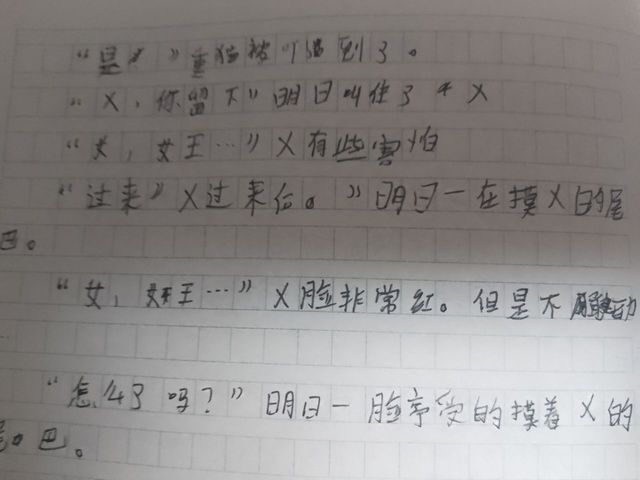 "是" 重猫被吓到了。
"X，你留下"明日叫住了 X
"女，女王…"X有些害怕
"过来"X过来后。"明日一在摸X的尾
巴。
"女，女王…"X脸非常红。但是不敢动
"怎么了吗？"明日一脸享受的摸着X的
尾巴。